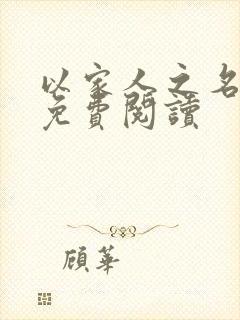 以家人之名
免費閱讀
顧華